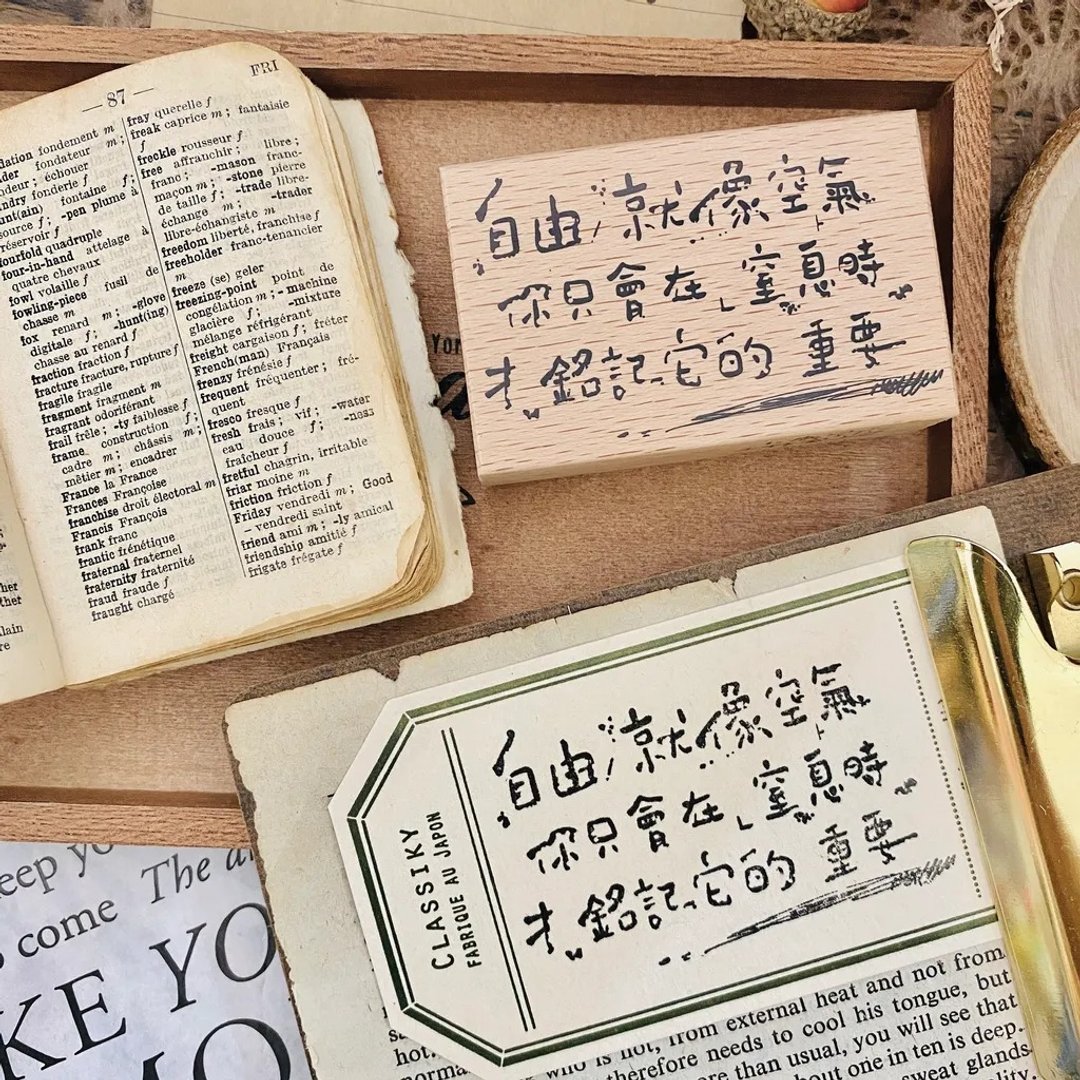 FRI
— 87 —
dation fondement m
fondateur m ;
échouer
fonderie f
fontaine f ;
-pen plume à
réservoir f
fourfold quadruple
four-in-hand attelage à
quatre chevaux
fowl volaille f
fowling-piece fusil de
chasse m
fox renard m ; -glove
digitale f ; -hunt(ing)
chasse au renard f
fraction fraction f
fracture fracture, rupture f
fragile fragile
fragment fragment m
fragrant odoriférant
frail frêle ; -ty faiblesse f
frame construction f ;
cadre m ; châssis m ;
métier m ; encadrer
France la France
Frances Françoise
franchise droit électoral m
Francis François
frank franc
frantic frénétique
fraternal fraternel
fraternity fraternité
fraud fraude f
fraught chargé
fray querelle f
freak caprice m ; fantaisie
f
freckle rousseur f
free affranchir ; libre ;
franc ; -mason franc-
maçon m ; -stone pierre
de taille f ; -trade libre-
échange m ; -trader
libre-échangiste m
freedom liberté, franchise f
freeholder franc-tenancier
m
freeze (se) geler
freezing-point point de
congélation m ; - machine
glacière f ; -mixture
mélange réfrigérant
freight cargaison f ; fréter
French(man) Français
frenzy frénésie f
frequent fréquenter ; fré-
quent
fresco fresque f
fresh frais ; vif ; -water
eau douce f ; -ness
fraîcheur f
fretful chagrin, irritable
friar moine m
friction friction f
Friday vendredi m ; Good
– vendredi saint
friend ami m ; -ly amical
friendship amitié f
frigate frégate f
自由,就像空氣
你只會在窒息時
才銘記它的重要
CLASSIKY
FABRIQUE AU JAPON
自由,就像空氣
你只會在窒息時
才銘記它的重要
eep yo
The a
come
KE YO
MO
hot.
who is not, from external heat and not from
therefore needs to cool his tongue, but
more than usual, you will see that
about one in ten is deep.
sweat glands